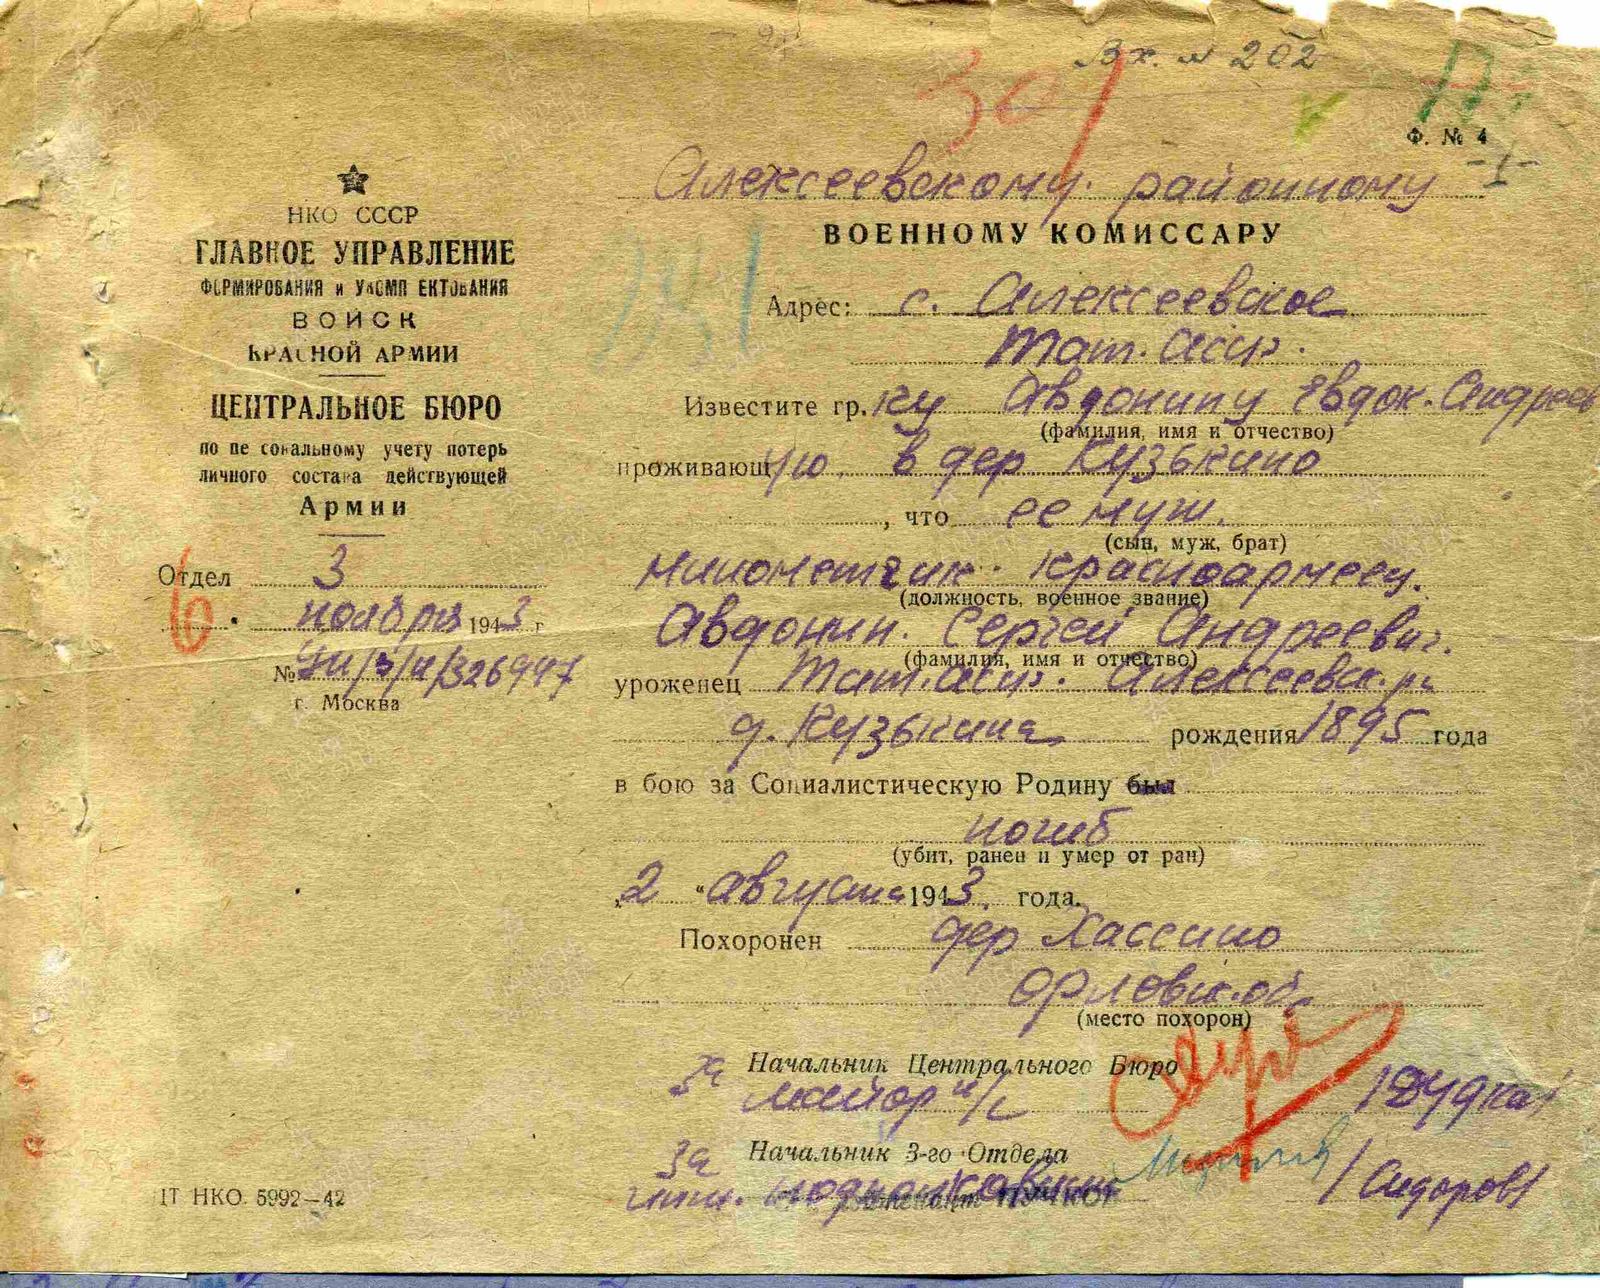 Вх. № 202
307
Ф. № 4
-1-
Алексеевскому районному
ВОЕННОМУ КОМИССАРУ
НКО СССР
ГЛАВНОЕ УПРАВЛЕНИЕ
ФОРМИРОВАНИЯ и УКОМП ЕКТОВАНИЯ
ВОЙСК
КРАСНОЙ АРМИИ
ЦЕНТРАЛЬНОЕ БЮРО
по пе сональному учету потерь
личного состава действующей
Армии
Отдел 3
6 ноября 1943 г
№ 326947
г. Москва
281
Адрес: с. Алексеевское
Тат. Асср.
Известите гр. ку Авдонину Евдок. Андреев
(фамилия, имя и отчество)
проживающую в дер Кузькино
, что ее муж.
(сын, муж, брат)
минометчик. Красноармеец.
(должность, военное звание)
Авдонин. Сергей Андреевич.
(фамилия, имя и отчество)
уроженец Тат. Асср. Алексеевск. р-
д. Кузькина рождения 1895 года
в бою за Социалистическую Родину был
погиб
(убит, ранен и умер от ран)
„2 “ августа 1943. года.
Похоронен дер Хассино
Орловск. об.
(место похорон)
За Начальник Центрального Бюро
майор и/с /Дудка/
За Начальник 3-го Отдела
/Сидоров/
1Т НКО. 5992—42